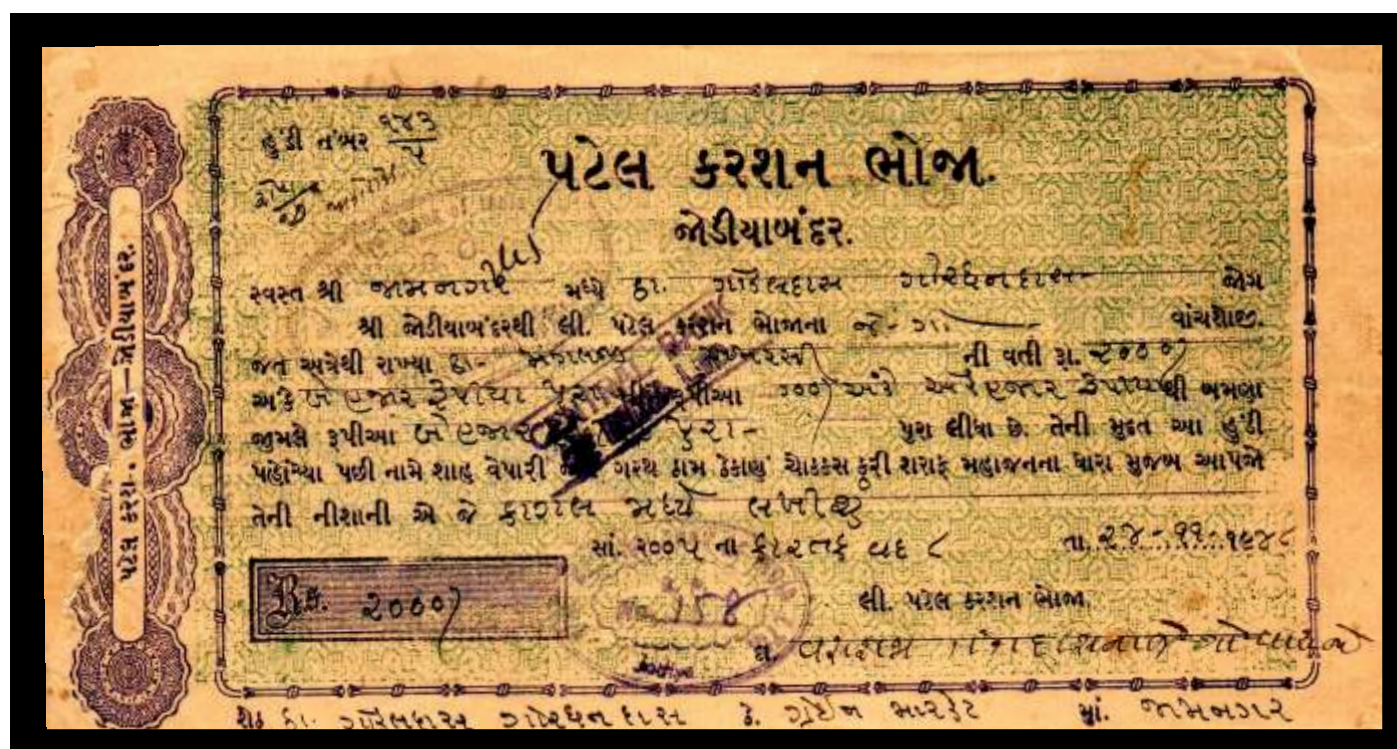 હુંડી નંબર ૧૪૩
૫
પટેલ કરશન ભોજા.
જોડીયાબંદર.
સ્વસ્ત શ્રી જામનગર મધ્યે ઠા. ગોકલદાસ ગોરધનદાસ જોગ
શ્રી જોડીયાબંદરથી લી. પટેલ કરશન ભોજાના જે-ગો વાંચશોજી.
જત અત્રેથી રાખ્યા ઠા- ની વતી રૂા. ૨૦૦૦)
અંકે બે હજાર રૂપીયા પુરા રૂપીઆ ૧૦૦૦) અંકે એક હજાર રૂપીયાથી બમણા
જુમલે રૂપીઆ બે હજાર પુરા- પુરા લીધા છે. તેની મુદત આ હુંડી
પહોંચ્યા પછી નામે શાહ વેપારી ગરથ ઠામ ઠેકાણું ચોકકસ કરી શરાફ મહાજનના ધારા મુજબ આપજો
તેની નીશાની એ જે કાગલ મધ્યે લખીશું
સાં. ૨૦૦૫ ના કારતક વદ ૮ તા. ૨૪-૧૧-૧૯૪૮
Rs. ૨૦૦૦)
લી. પટેલ કરશન ભોજા.
ઠા. ગોકલદાસ ગોરધનદાસ ઠે. ગ્રેઈન મારકેટ મું. જામનગર
પટેલ કરશન ભોજા—જોડીયાબંદર.